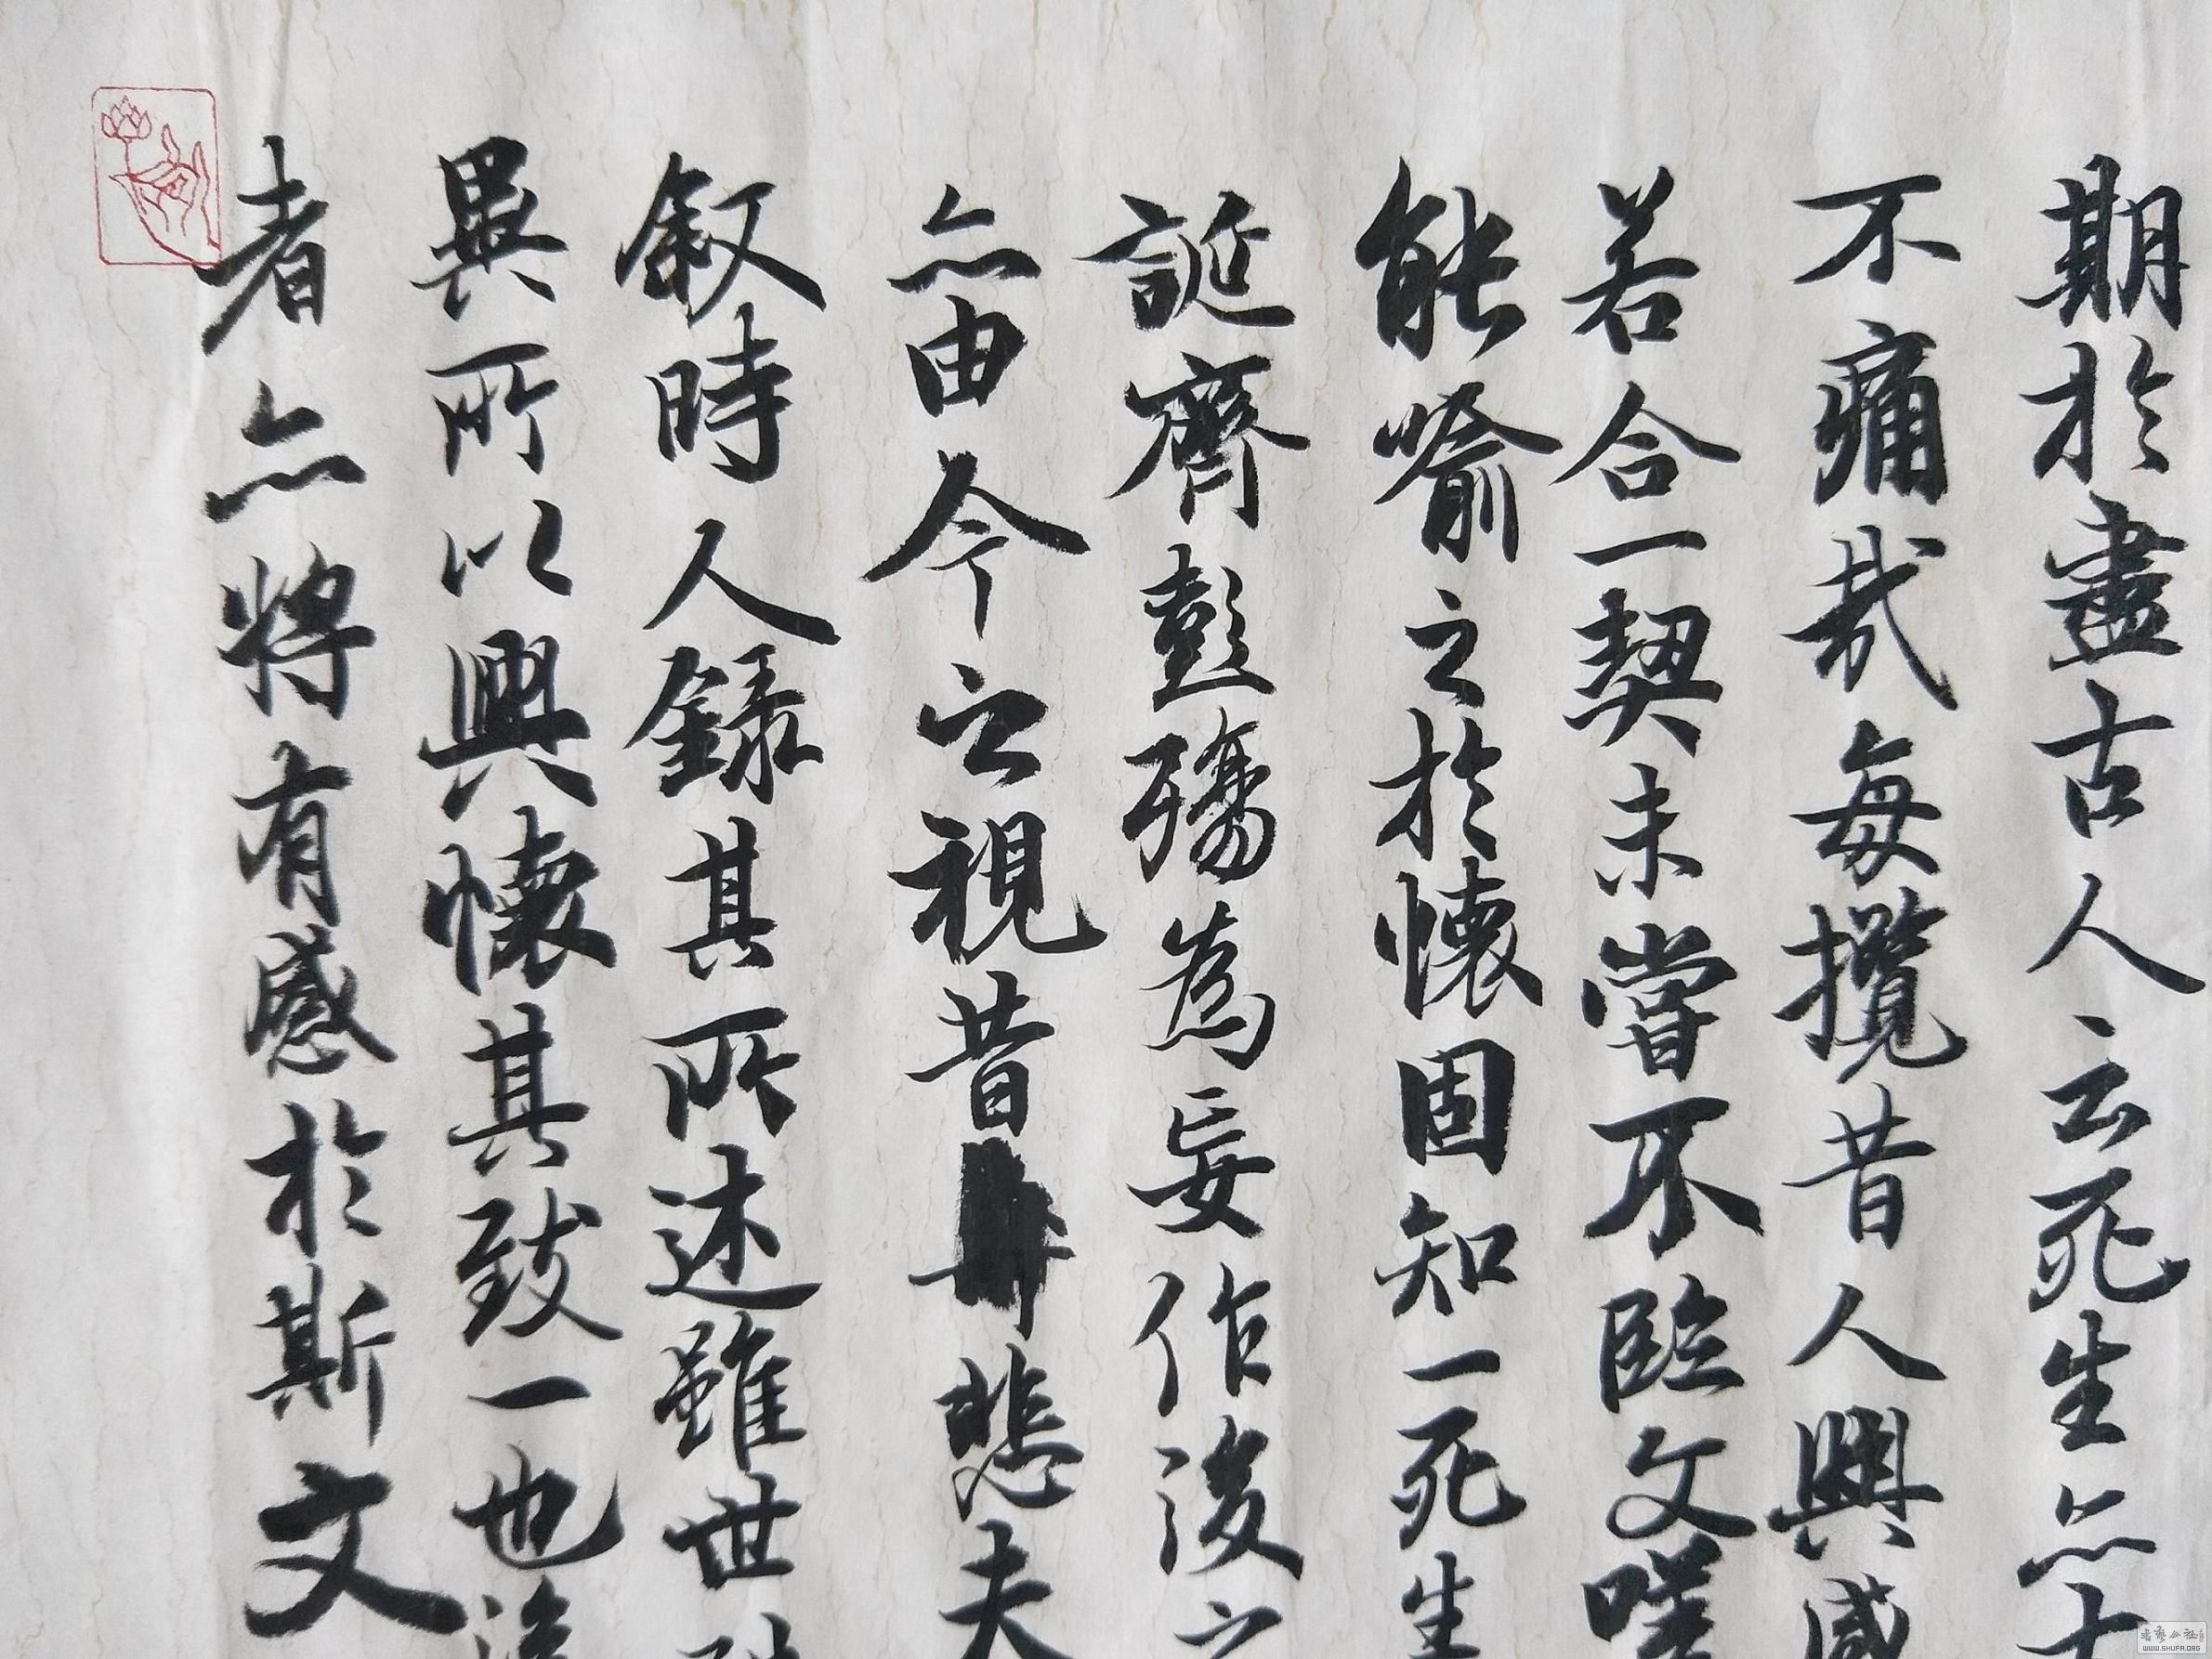 期於盡古人云死生亦大
不痛哉每攬昔人興感
若合一契未嘗不臨文嗟
能喻之於懷固知一死生
誕齊彭殤為妄作後之
亦由今之視昔悲夫
叙時人錄其所述雖世
異所以興懷其致一也後
者亦將有感於斯文
WWW.SHUFA.ORG